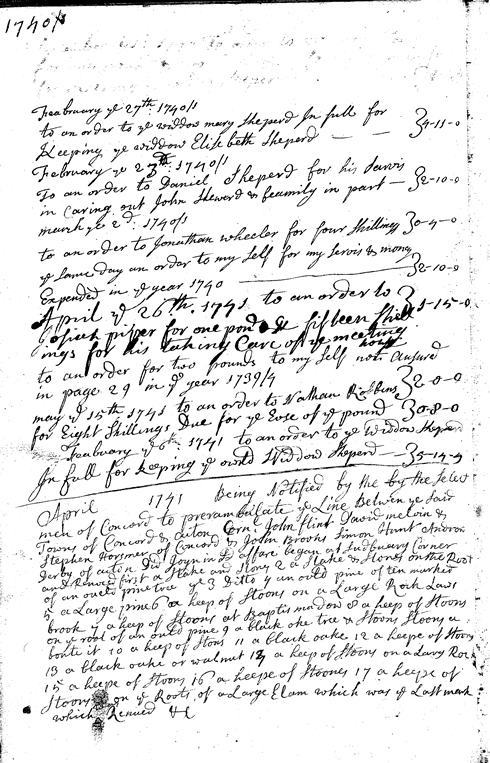 1740/1
Feabruary ye 27th: 1740/1
to an order to ye widdow mary Sheperd In full for
Keeping ye widdow Elisebeth Sheperd — — 3 4-11-0
February ye 27th: 1740/1
To an order to Daniel Sheperd for his Sarvis
in Caring out John Steward & feamily in part — 3 2-10-0
march ye 2d: 1740/1
to an order to Jonathan wheeler for four Shillings 3 0-4-0
ye same day an order to my Self for my servis & mony
Expended in ye year 1740 3 2-10-0
April ye 26th. 1741 to an order to
Josiah piper for one pond & fifteen shill 3 1-15-0
ings for his taking Care of ye meeting
house
to an order for two pounds to my Self not ansured
in page 29 in ye year 1739/4 3 2-0-0
may ye 15th: 1741 to an order to Nathan Robbins
for Eight Shillings Due for ye Euse of ye pound 3 0-8-0
Feabuary ye 6th: 1741 to an order to ye Widdow Sheperd
In full for Keeping ye ould Widdow Sheperd — 3 5-14-4
April 1741 Being Notified by the by the Select
men of Concord to prerambulate ye Line Betwen ye Said
Towns of Concord & acton Corni John flint David melvin &
Stephen Horsmer of Concord & John Brooks Simon Hunt
Derby of acton Did Joyn in ye affare began at Sudbuary Corner
and Renued first a Stake and Stons 2 a Stake & Stones on the Root
of an ould pine tree ye 3 ditto 4 an ould pine of ten marked
5 a Large pine 6 a heep of Stoons on a Large Rock Laws
brook 7 a heep of Stoons at Baptis madow 8 a heep of Stoons
on ye root of an ould pine 9 a black oke tree & Stoons Stoons a
boute it 10 a heep of Stons 11 a black oake 12 a heepe of Stons
13 a black oake or walnut 14 a heep of Stoons on a Larg Rock
15 a heepe of Stoons 16 a heepe of Stoones 17 a heepe of
Stoons on ye Roots of a Large Elam which was ye Last mark
which Renued &c